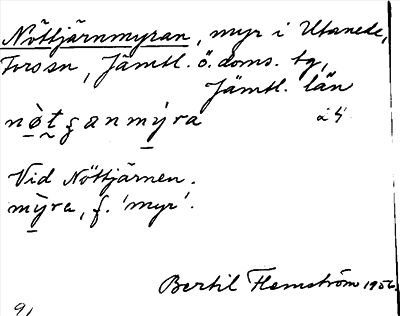 Nöttjärnmyran, myr i Utanede,
Fors sn, Jämtl. ö. doms. tg,
Jämtl. län
Vid Nöttjärnen.
mỳra, f. 'myr'.
Bertil Flemström 1956.